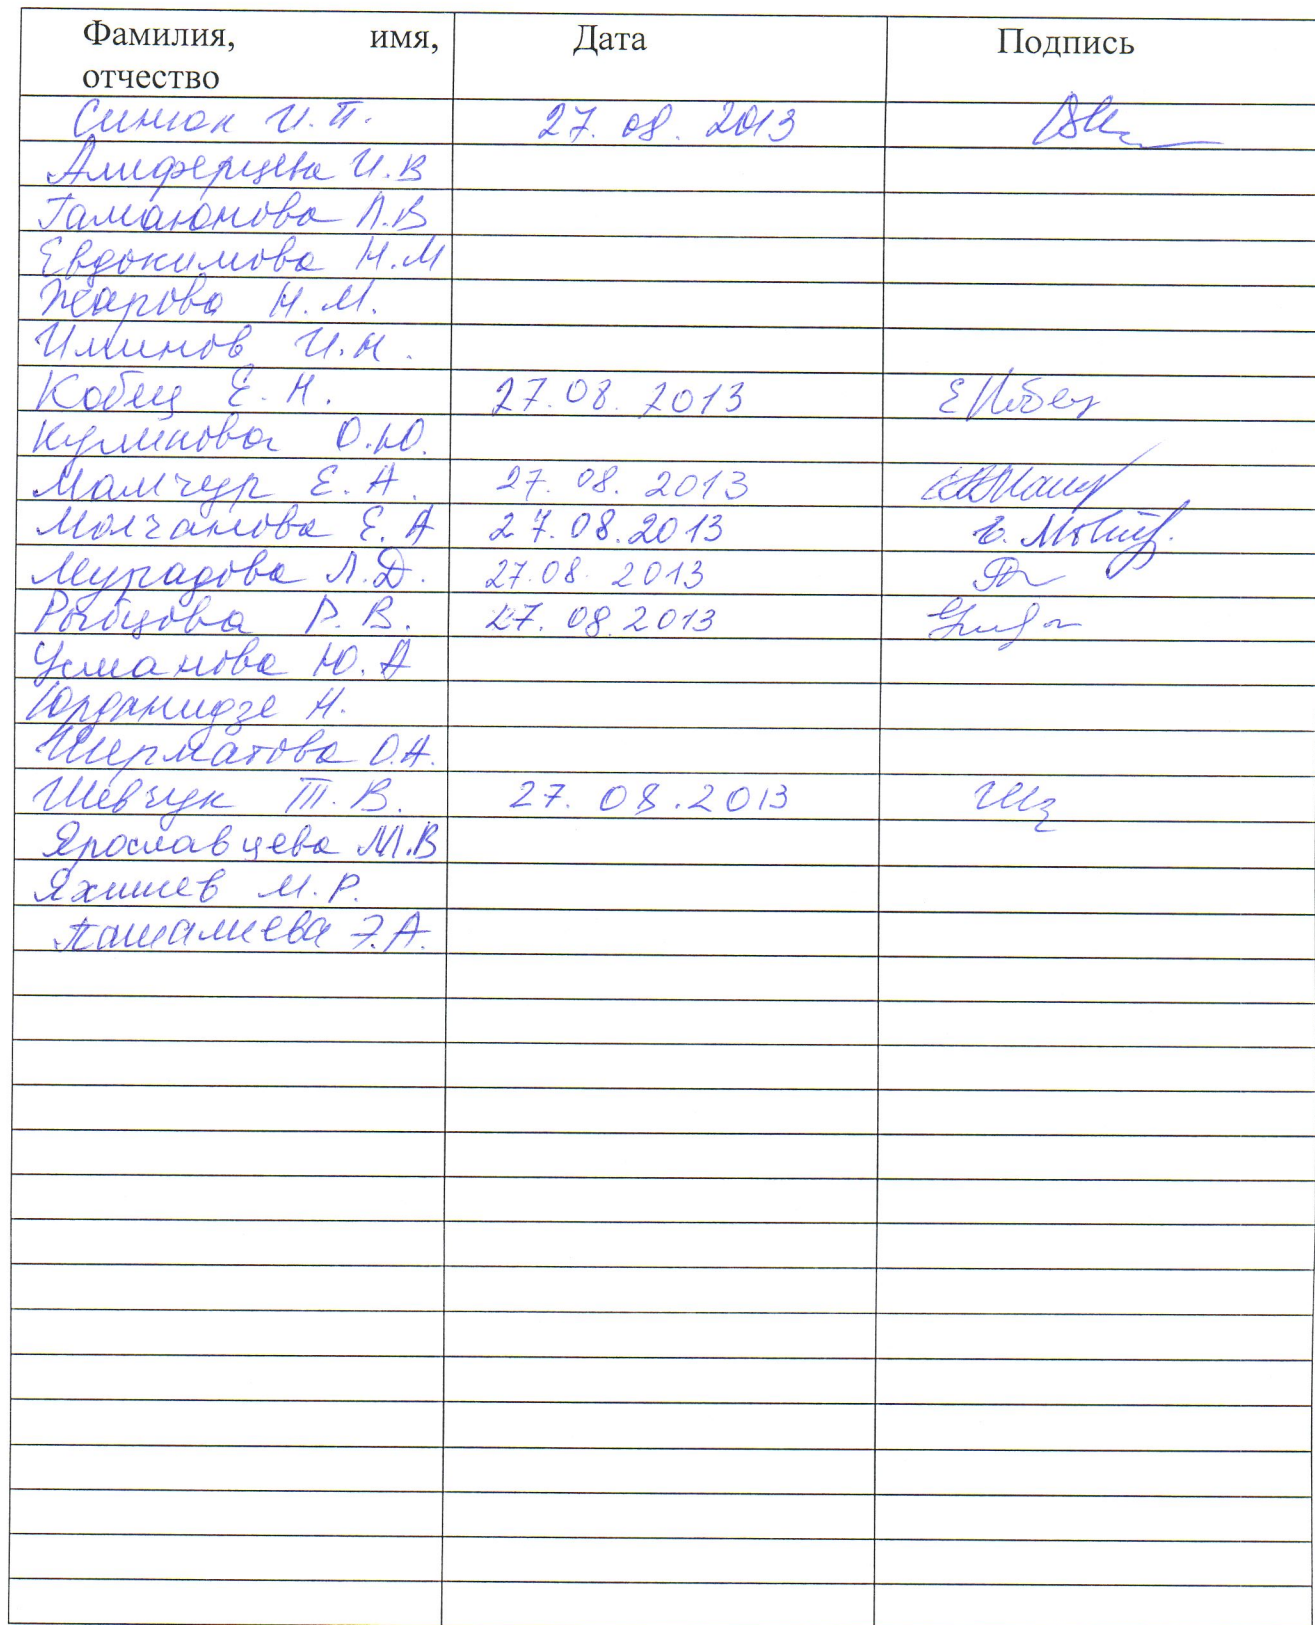 Фамилия, имя, Дата Подпись
отчество
Синюк И.П. 27.08.2013
Алиферцева И.В
Гамаюнова Л.В
Евдокимова Н.М
Жарова Н.М.
Иминов И.Н.
Кобец Е.Н. 27.08.2013 ЕКобец
Куликова О.Ю.
Мамчур Е.А. 27.08.2013
Молчанова Е.А 27.08.2013
Мурадова Л.Д. 27.08.2013
Рыбцова Р.В. 27.08.2013
Усманова Ю.А
Иорданидзе Н.
Шерматова О.А.
Шевчук Т.В. 27.08.2013
Ярославцева М.В
Яхишев М.Р.
Пашалиева Э.А.